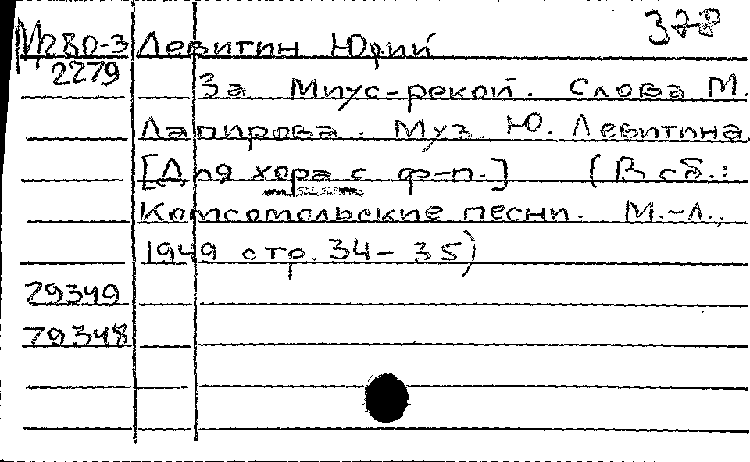 378
М280-3 Левитин Юрий
2279 За Миус-рекой. Слова М.
Лапирова. Муз. Ю. Левитина.
[Для хора с ф-п.] (В сб.:
Комсомольские песни. М.-Л.,
1949 стр. 34-35)
29349
79348